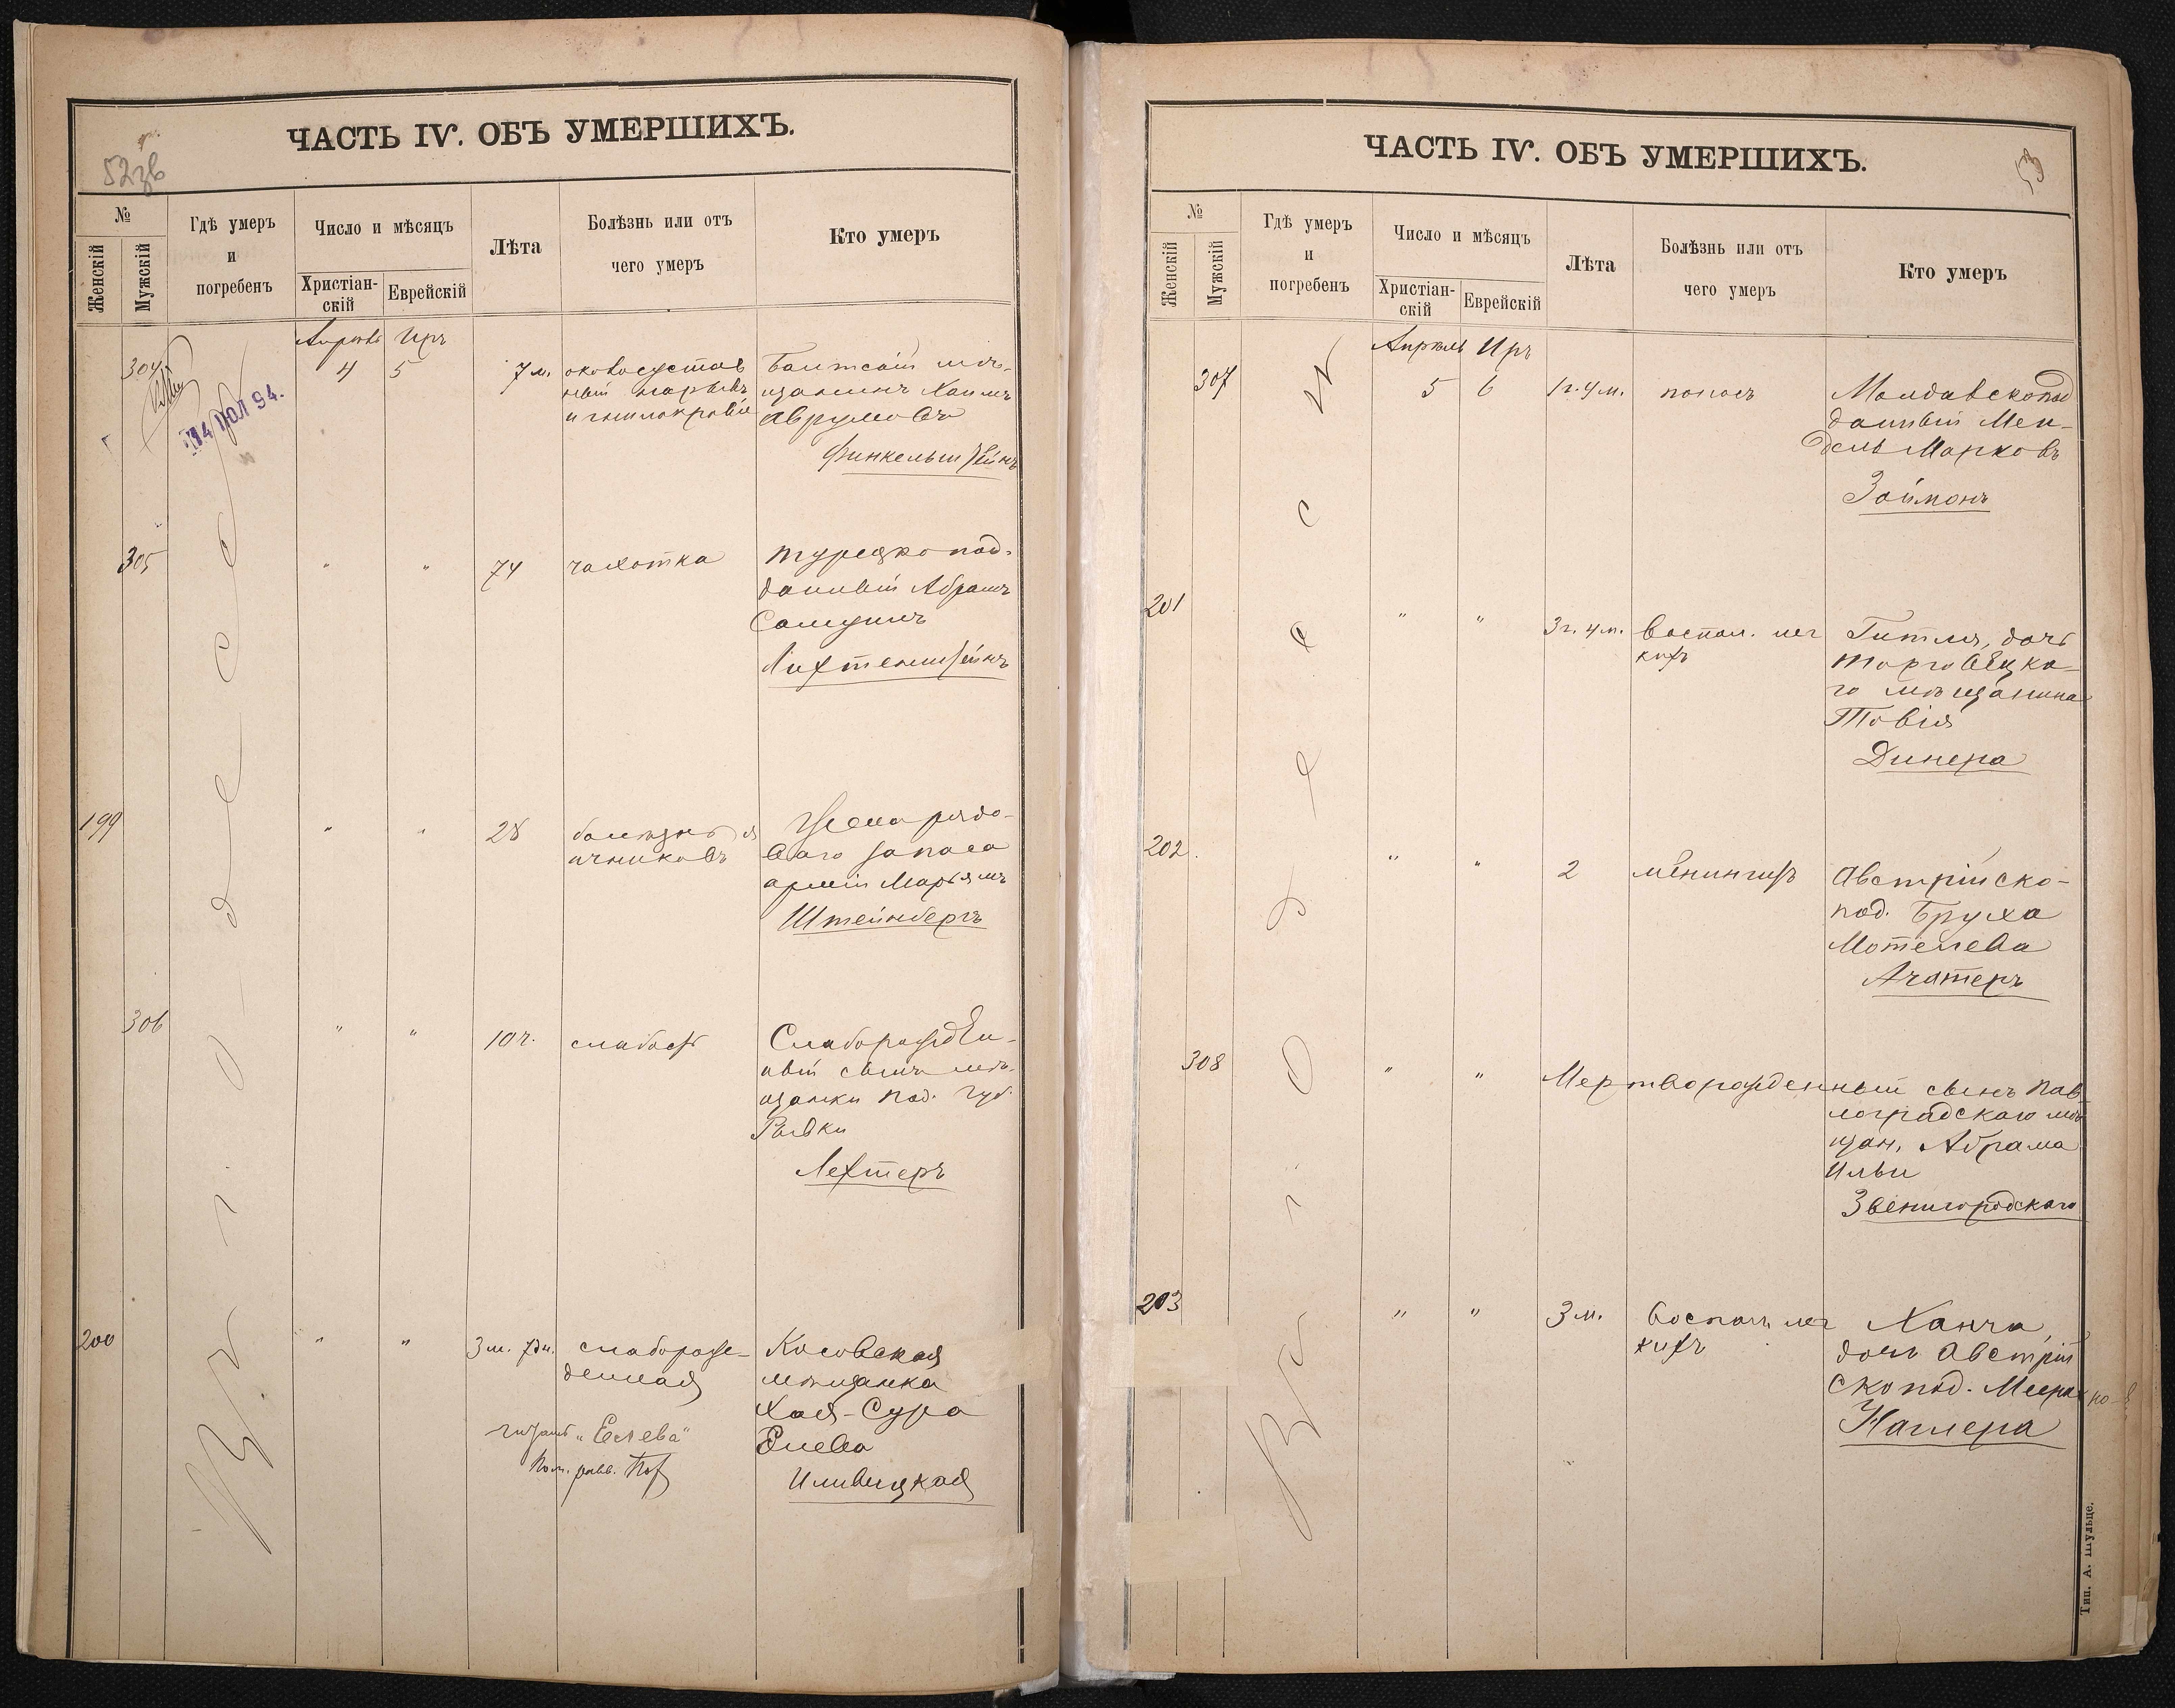 ЧАСТЬ IV. ОБЪ УМЕРШИХЪ.
52зв
№
Женскій
Мужскій
Гдѣ умеръ
и
погребенъ
Число и мѣсяцъ
Христіан-
скій
Еврейскій
Лѣта
Болѣзнь или отъ
чего умеръ
Кто умеръ
Апрѣль Иръ
304
4 5
7 м.
околосустав
ный нарывъ
и гнилокровіе
Балтскій мѣ-
щанинъ Хаимъ
Аврумовъ
Финкельштейнъ
14 ІЮЛ 94.
305
" "
74
чахотка
Турецкопод-
данный Абрамъ
Самуилъ
Лихтенштейнъ
199
" "
28
Жена рядо-
ваго запаса
арміи Марьямъ
Штейнбергъ
306
" "
10 ч.
слабость
Слаборожден-
ный сынъ мѣ-
щанки Под. губ.
Рывки
Лехтеръ
200
" "
3 м. 7 дн.
слаборож-
денная
Косовская
мѣщанка
Хая-Сура
Елева
Иливицкая
читать "Еелева"
Въ г. Одессѣ
ЧАСТЬ IV. ОБЪ УМЕРШИХЪ.
53
№
Женскій
Мужскій
Гдѣ умеръ
и
погребенъ
Число и мѣсяцъ
Христіан-
скій
Еврейскій
Лѣта
Болѣзнь или отъ
чего умеръ
Кто умеръ
Апрѣль Иръ
307
5 6
1 г. 4 м.
поносъ
Молдавскопод
данный Мен-
дель Марковъ
Займанъ
201
" "
3 г. 4 м.
воспал. лег
кихъ
Гитля, дочь
Торговецка-
го мѣщанина
Товія
Динера
202.
" "
2
менингитъ
Австрійско-
под. Бруха
Мотелева
Ачатеръ
308
" "
Мертворожденный сынъ Пав-
лоградскаго мѣ
щан. Абрама
Ильи
Звенигородскаго
203
" "
3 м.
воспал. лег
кихъ
Ханча,
дочь Австрій
скопод. Меера
Наглера
Въ г. Одессѣ
Тип. А. Шульце.